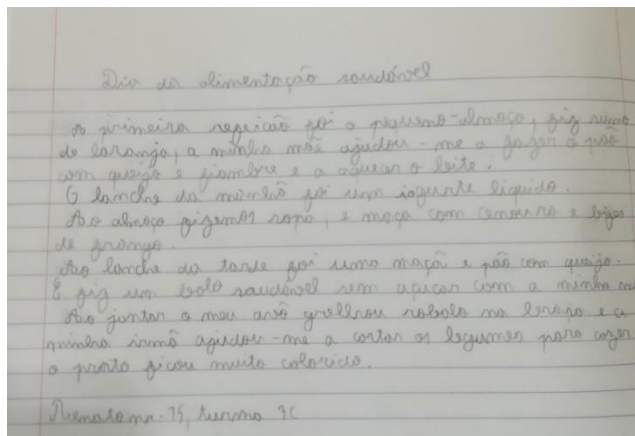 Dia da alimentação saudável
A primeira refeicão foi o pequeno-almoço, fiz sumo
de laranja, a minha mãe ajudou-me a fazer o pão
com queijo e fiambre e a aquecer o leite.
O lanche da manhã foi um iogurte liquido.
Ao almoço fizemos sopa, e maça com cenoura e bifes
de frango.
Ao lanche da tarde foi uma maçã e pão com queijo.
E fiz um bolo saudável sem açucar com a minha
Ao jantar o meu avô grelhou robalo na e a
minha irmã ajudou-me a cortar os legumes para cozer
o prato ficou muito colorido.
Renato nr. 15, turma 3C